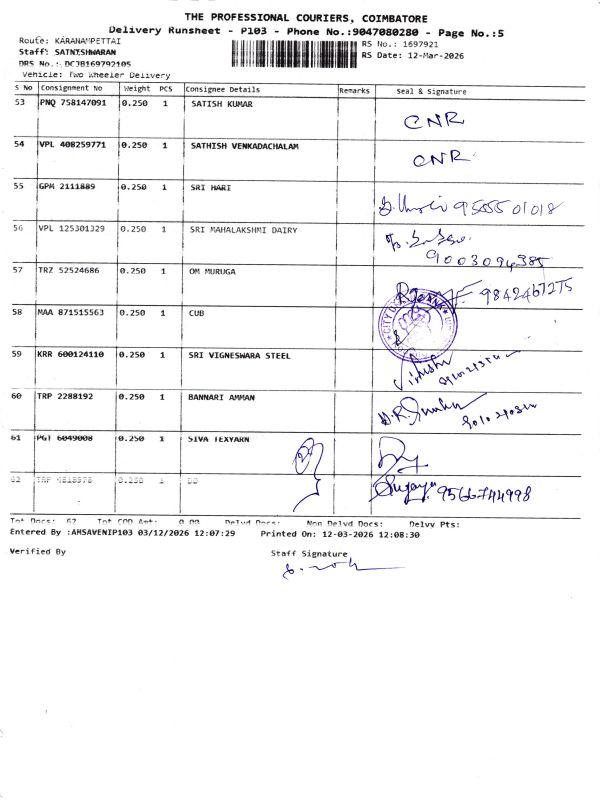 THE PROFESSIONAL COURIERS, COIMBATORE
Delivery Runsheet - P103 - Phone No.:9047080280 - Page No.:5
Route: KARANAMPETTAI RS No.: 1697921
Staff: SATHISHWARAN RS Date: 12-Mar-2026
DRS No.: DCJB169792105
Vehicle: Two Wheeler Delivery
S No Consignment No Weight PCS Consignee Details Remarks Seal & Signature
53 PNQ 758147091 0.250 1 SATISH KUMAR CNR
54 VPL 408259771 0.250 1 SATHISH VENKADACHALAM CNR
55 GPM 2111889 0.250 1 SRI HARI 95655 01018
56 VPL 125301329 0.250 1 SRI MAHALAKSHMI DAIRY 9003094385
57 TRZ 52524686 0.250 1 OM MURUGA 9842467275
58 MAA 871515563 0.250 1 CUB
59 KRR 600124110 0.250 1 SRI VIGNESWARA STEEL
60 TRP 2288192 0.250 1 BANNARI AMMAN
61 PGT 6049008 0.250 1 SIVA TEXYARN
62 TRP 0.250 1 DO 9566744998
Tot Docs: 62 Tot COD Amt: 0.00 Delvd Docs: Non Delvd Docs: Delvy Pts:
Entered By :AMSAVENIP103 03/12/2026 12:07:29 Printed On: 12-03-2026 12:08:30
Verified By Staff Signature